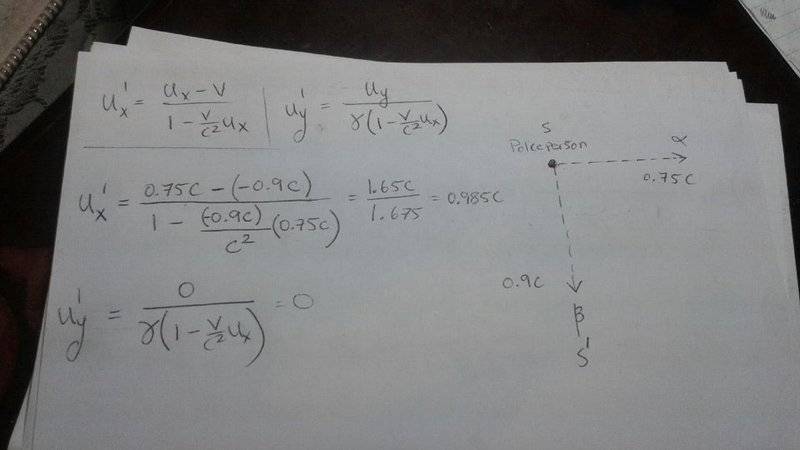 u'x = ux - v / 1 - v/c² ux | u'y = uy / γ(1 - v/c² ux)
u'x = 0.75c - (-0.9c) / 1 - (-0.9c)/c² (0.75c) = 1.65c / 1.675 = 0.985c
u'y = 0 / γ(1 - v/c² ux) = 0
S
Policeperson
α
0.75c
0.9c
β
S'